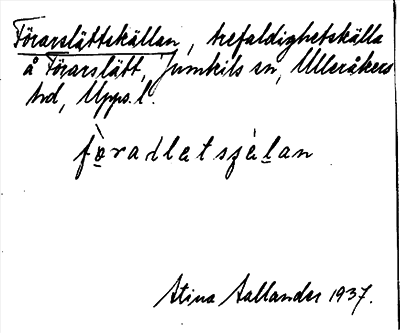 Förarslättskällan, trefaldighetskälla
å Förarslätt, Jumkils sn, Ulleråkers
hd, Upps. l.
fòradlatsjèlan
Stina Sallander 1937.